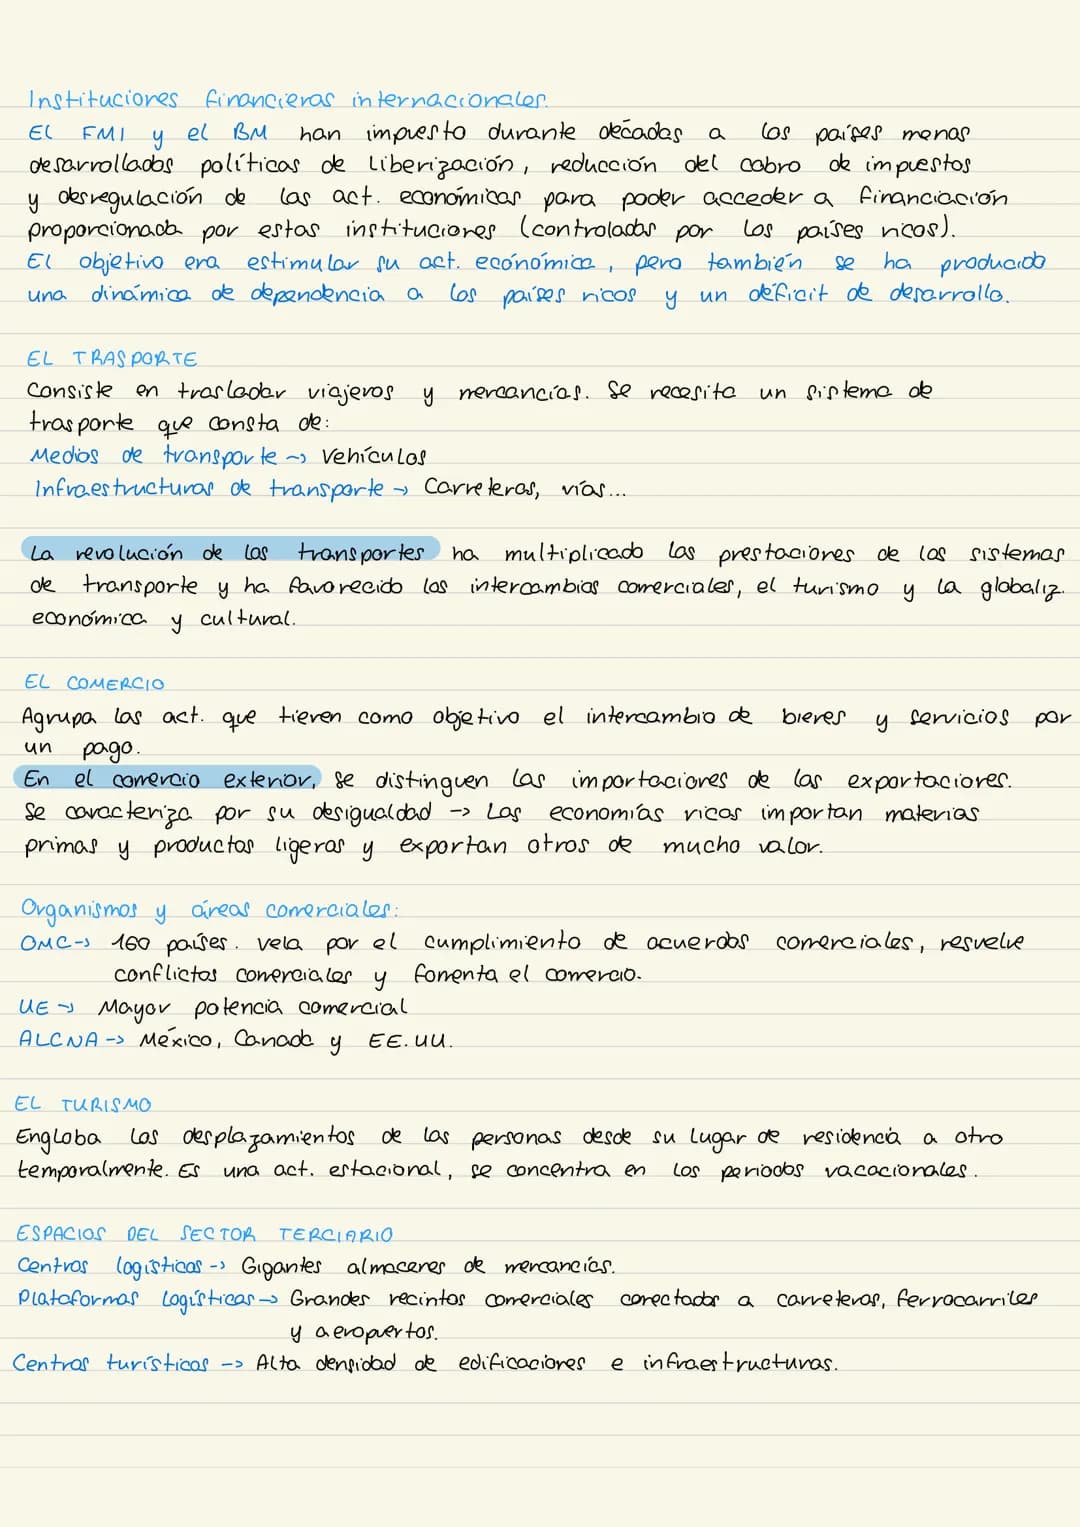 Instituciones financieras internacionales.
El FMI y el BM han impuesto durante décadas a los países menos
desarrollados políticas de liberización, reducción del cobro de impuestos
y desregulación de las act. económicas para poder acceder a financiación
proporcionada por estas instituciones (controladas por los países ricos).
El objetivo era estimular su act. económica, pero también se ha producido
una dinámica de dependencia a los países ricos y un déficit de desarrollo.
EL TRASPORTE
Consiste en trasladar viajeros y mercancías. Se necesita un sistema de
trasporte que consta de:
Medios de transporte → Vehículos
Infraestructuras de transporte → Carreteras, vías...
La revolución de los transportes ha multiplicado las prestaciones de los sistemas
de transporte y ha favorecido los intercambios comerciales, el turismo y la globaliz.
económica y cultural.
EL COMERCIO
Agrupa las act. que tienen como objetivo el intercambio de bienes y servicios por
un pago.
En el comercio exterior, se distinguen las importaciones de las exportaciones.
Se caracteriza por su desigualdad -> Las economías ricas importan materias
primas y productos ligeros y exportan otros de mucho valor.
Organismos y áreas comerciales:
OMC -> 160 países. Vela por el cumplimiento de acuerdos comerciales, resuelve
conflictos comerciales y fomenta el comercio.
UE -> Mayor potencia comercial
ALCNA -> México, Canadá y EE.UU.
EL TURISMO
Engloba los desplazamientos de las personas desde su lugar de residencia a otro
temporalmente. Es una act. estacional, se concentra en los periodos vacacionales.
ESPACIOS DEL SECTOR TERCIARIO
Centros logísticos -> Gigantes almacenes de mercancías.
Plataformas logísticas -> Grandes recintos comerciales conectados a carreteras, ferrocarriles
y aeropuertos.
Centros turísticos -> Alta densidad de edificaciones e infraestructuras.